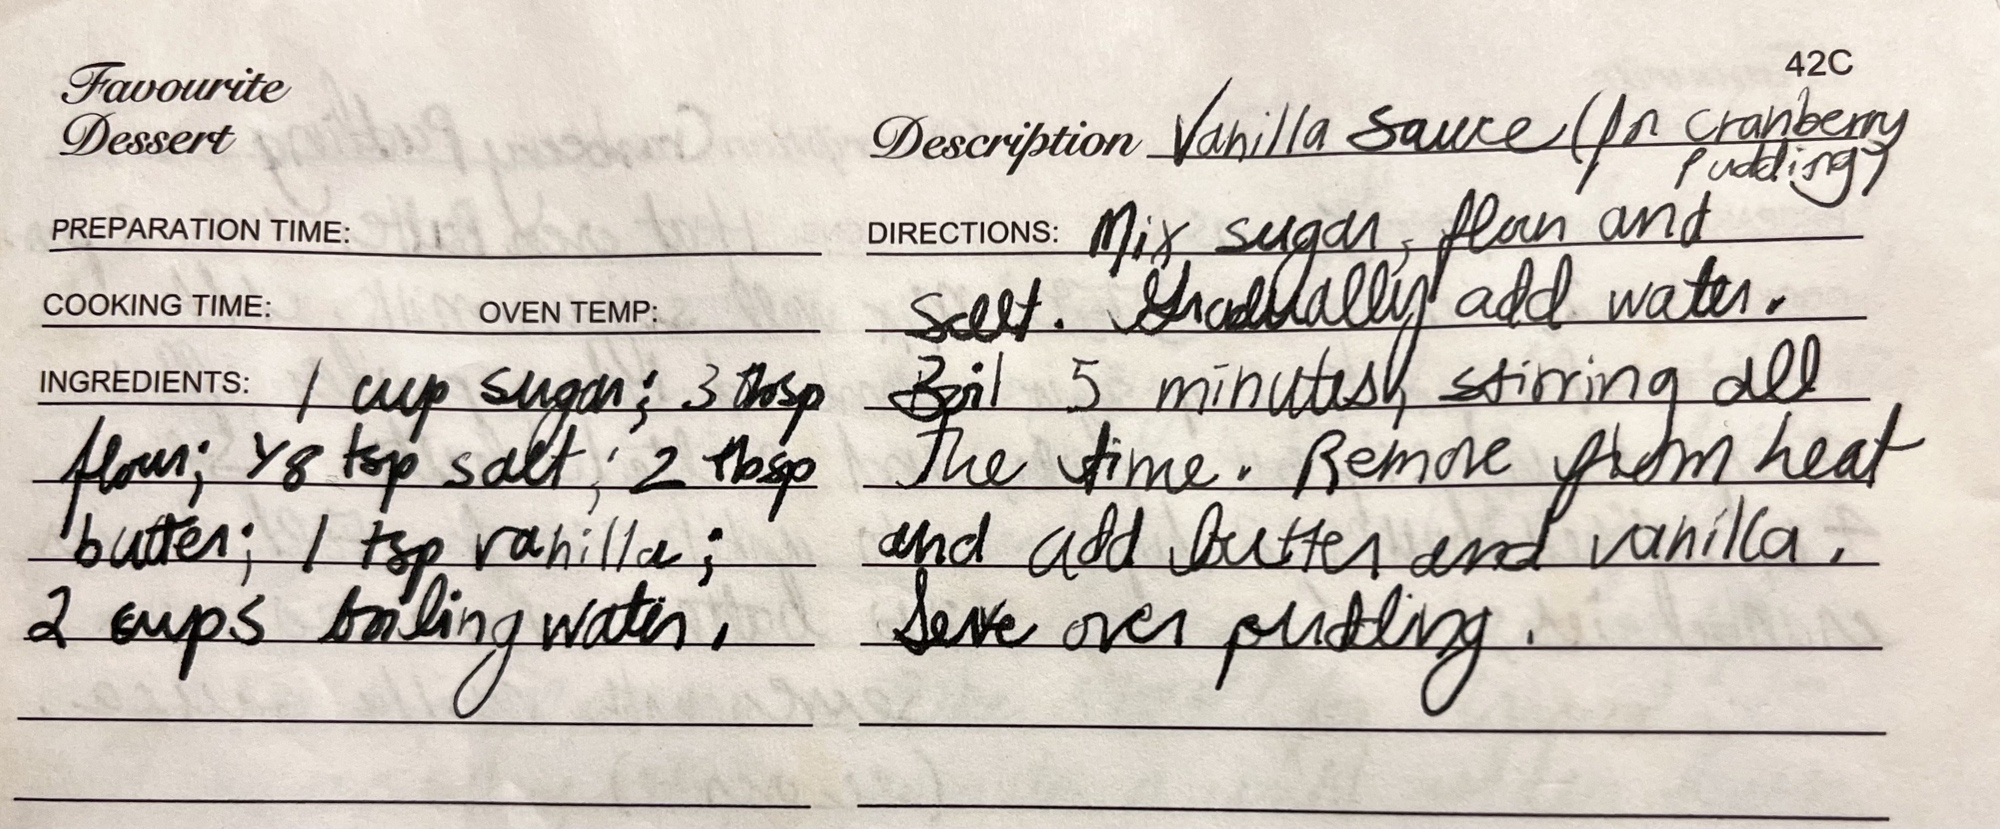 42C
Favourite
Dessert
Description Vanilla Sauce (for Cranberry
Pudding)
PREPARATION TIME:
COOKING TIME: OVEN TEMP:
INGREDIENTS: 1 cup sugar; 3 tbsp
flour; 1/8 tsp salt; 2 tbsp
butter; 1 tsp vanilla;
2 cups boiling water.
DIRECTIONS: Mix sugar, flour and
Salt. Gradually add water.
Boil 5 minutes, stirring all
The time. Remove from heat
and add butter and vanilla.
Serve over pudding.